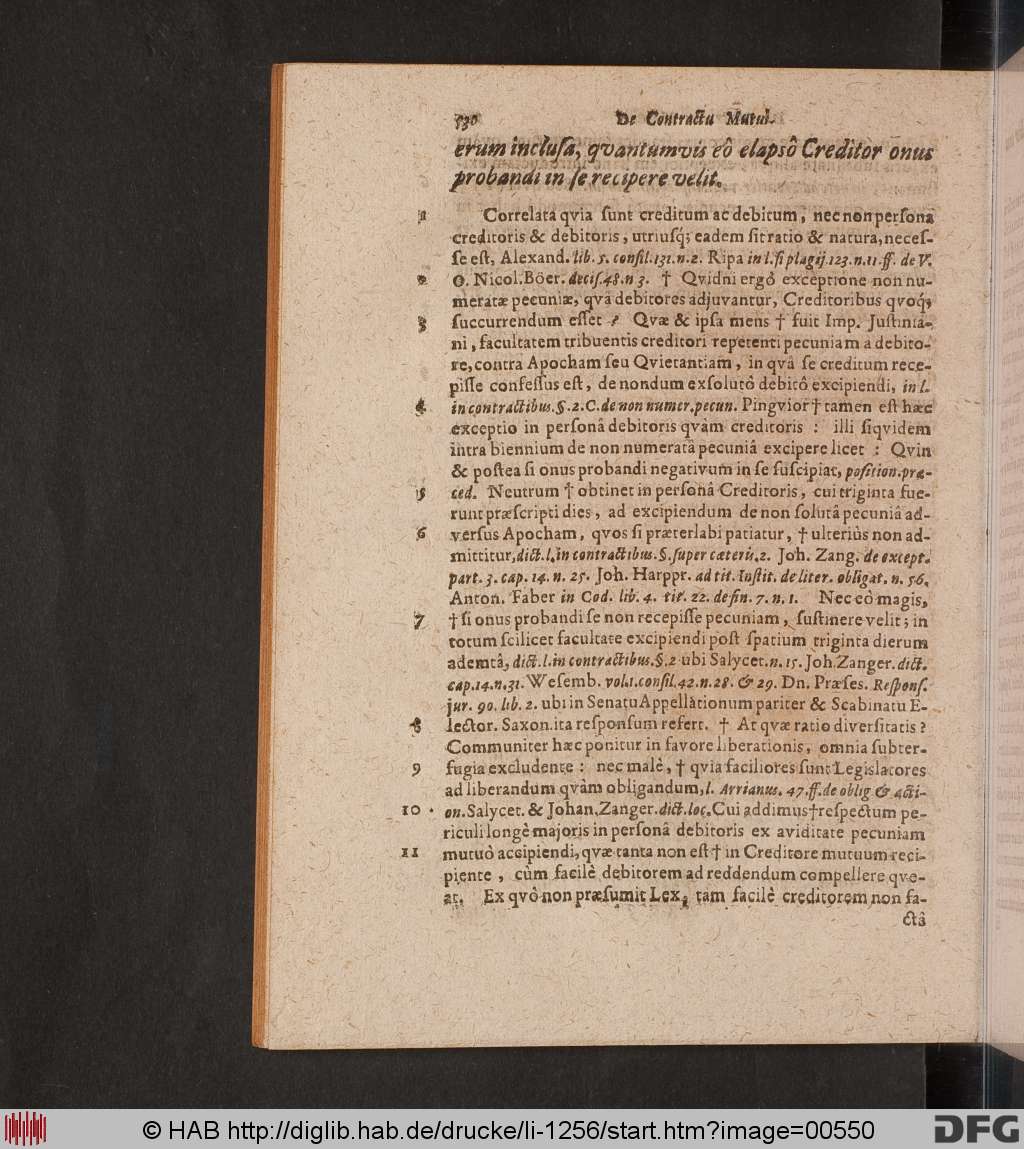 530 De Contractu Mutui.
erum inclusa, qvantumvis eô elapsô Creditor onus
probandi in se recipere velit.
1 Correlata qvia sunt creditum ac debitum, nec non persona
creditoris & debitoris, utriusq́; eadem sit ratio & natura, neces-
se est, Alexand. lib. 5. consil. 131. n. 2. Ripa in l. si plagij. 123. n. 11. ff. de V.
2 O. Nicol. Böer. decis. 48. n 3. † Qvidni ergò exceptione non nu-
meratæ pecuniæ, qvâ debitores adjuvantur, Creditoribus qvoq́;
3 succurrendum esset? Qvæ & ipsa mens † fuit Imp. Justinia-
ni, facultatem tribuentis creditori repetenti pecuniam à debito-
re, contra Apocham seu Qvietantiam, in qvâ se creditum rece-
pisse confessus est, de nondum exsolutô debitô excipiendi, in l.
4 in contractibus. §. 2. C. de non numer. pecun. Pingvior † tamen est hæc
exceptio in personâ debitoris qvàm creditoris : illi siqvidem
intra biennium de non numeratâ pecuniâ excipere licet : Qvin
& postea si onus probandi negativum in se suscipiat, position. præ-
5 ced. Neutrum † obtinet in personâ Creditoris, cui triginta fue-
runt præscripti dies, ad excipiendum de non solutâ pecuniâ ad-
6 versus Apocham, qvos si præterlabi patiatur, † ulteriùs non ad-
mittitur, dict. l. in contractibus. §. super cæteris. 2. Joh. Zang. de except.
part. 3. cap. 14. n. 25. Joh. Harppr. ad tit. Instit. de liter. obligat. n. 56.
Anton. Faber in Cod. lib. 4. tit. 22. defin. 7. n. 1. Nec eò magis,
7 † si onus probandi se non recepisse pecuniam, sustinere velit; in
totum scilicet facultate excipiendi post spatium triginta dierum
ademtâ, dict. l. in contractibus. §. 2 ubi Salycet. n. 15. Joh. Zanger. dict.
cap. 14. n. 31. Wesemb. vol. 1. consil. 42. n. 28. & 29. Dn. Præses. Respons.
jur. 90. lib. 2. ubi in Senatu Appellationum pariter & Scabinatu E-
8 lector. Saxon. ita responsum refert. † At qvæ ratio diversitatis?
Communiter hæc ponitur in favore liberationis, omnia subter-
9 fugia excludente : nec malè, † qvia faciliores sunt Legislatores
ad liberandum qvàm obligandum, l. Arrianus. 47. ff. de oblig & acti-
10 on. Salycet. & Johan. Zanger. dict. loc. Cui addimus † respectum pe-
riculi longè majoris in personâ debitoris ex aviditate pecuniam
11 mutuò accipiendi, qvæ tanta non est † in Creditore mutuum reci-
piente, cùm facilè debitorem ad reddendum compellere qve-
at. Ex qvô non præsumit Lex, tam facilè creditorem non fa-
ctâ
© HAB http://diglib.hab.de/drucke/li-1256/start.htm?image=00550
DFG